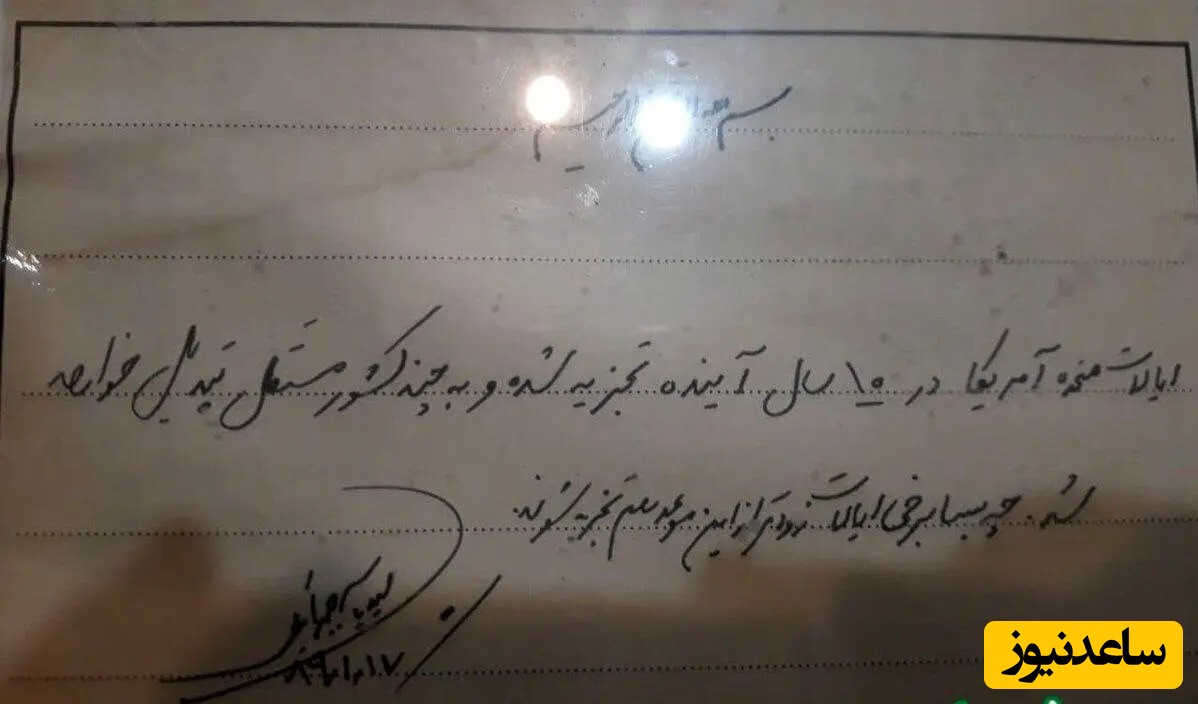 بسم الله الرحیم
ایالات متحده آمریکا در ۱۵ سال آینده تجزیه شده و به چند کشور مستقل تبدیل خواهد
شد. چه بسا برخی ایالات زودتر از این موعد هم تجزیه شوند.
سید یاسر جبرائیلی
ساعدنیوز